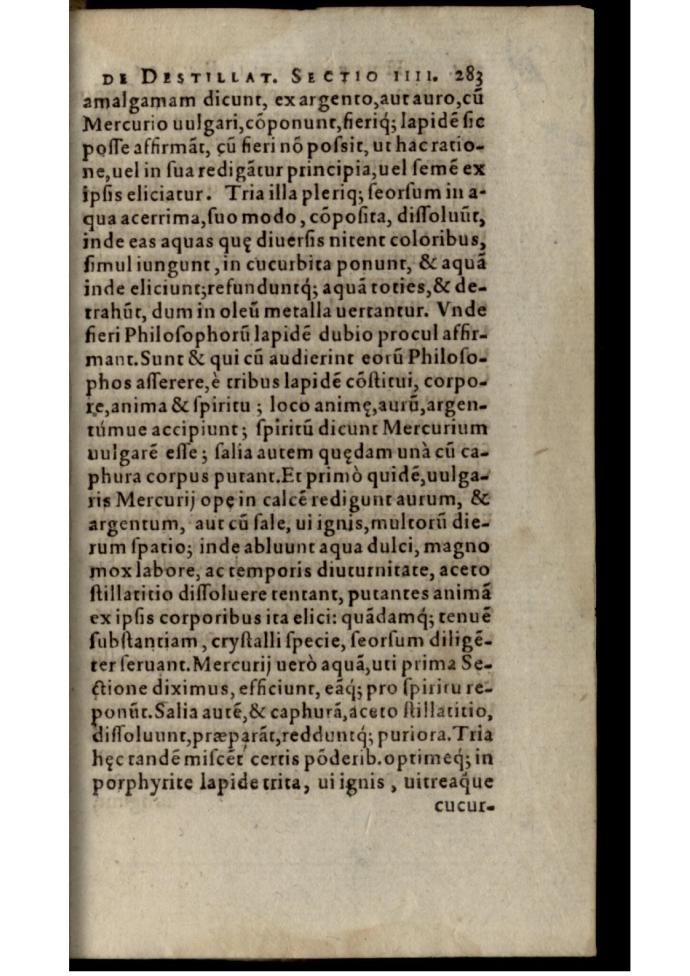 DE DESTILLAT. SECTIO IIII. 283
amalgamam dicunt, ex argento,aut auro,cũ
Mercurio uulgari,cõponunt,fieriq́; lapidẽ ſic
poſſe affirmãt, cũ fieri nõ poſsit, ut hac ratio-
ne,uel in ſua redigãtur principia,uel ſemẽ ex
ipſis eliciatur. Tria illa pleriq; ſeorſum in a-
qua acerrima,ſuo modo, cõpoſita, diſſoluũt,
inde eas aquas quę diuerſis nitent coloribus,
ſimul iungunt,in cucurbita ponunt, & aquã
inde eliciunt;refunduntq́; aquã toties,& de-
trahũt, dum in oleũ metalla uertantur. Vnde
fieri Philoſophorũ lapidẽ dubio procul affir-
mant.Sunt & qui cũ audierint eorũ Philoſo-
phos aſſerere,è tribus lapidẽ cõſtitui, corpo-
re,anima & ſpiritu; loco animę,aurũ,argen-
túmue accipiunt; ſpiritũ dicunt Mercurium
uulgarẽ eſſe; ſalia autem quędam unà cũ ca-
phura corpus putant.Et primò quidẽ,uulga-
ris Mercurij opę in calcẽ redigunt aurum, &
argentum, aut cũ ſale, ui ignis,multorũ die-
rum ſpatio; inde abluunt aqua dulci, magno
mox labore, ac temporis diuturnitate, aceto
ſtillatitio diſſoluere tentant, putantes animã
ex ipſis corporibus ita elici: quãdamq́; tenuẽ
ſubſtantiam, cryſtalli ſpecie, ſeorſum diligẽ-
ter ſeruant.Mercurij uerò aquã,uti prima Se-
ctione diximus, efficiunt, eãq́; pro ſpiritu re-
ponũt.Salia autẽ,& caphurã,aceto ſtillatitio,
diſſoluunt,præparãt,redduntq́; puriora.Tria
hęc tandẽ miſcẽt certis põderib.optimeq́; in
porphyrite lapide trita, ui ignis, uitreaq́ue
cucur-